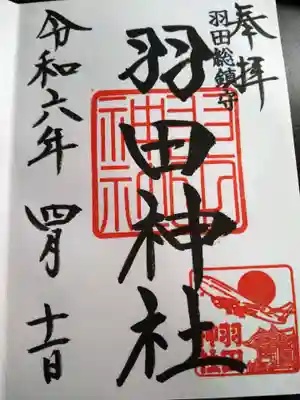 奉拝
羽田総鎮守
羽田神社
令和六年 四月 十一日
羽田
神社
羽田
神社